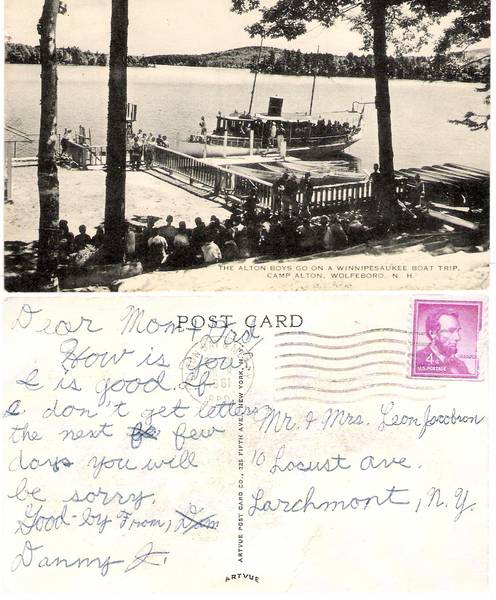 THE ALTON BOYS GO ON A WINNIPESAUKEE BOAT TRIP.
CAMP ALTON, WOLFEBORO, N. H.
POST CARD
Dear Mom + Dad
How is you
I is good. If
I don't get letters
the next few
days you will
be sorry.
Good-by From,
Danny J.
1961
4¢
U.S. POSTAGE
Mr. & Mrs. Leon Jacobson
10 Locust Ave.
Larchmont, N.Y.
ARTVUE POST CARD CO., 225 FIFTH AVE., NEW YORK, N. Y.
ARTVUE